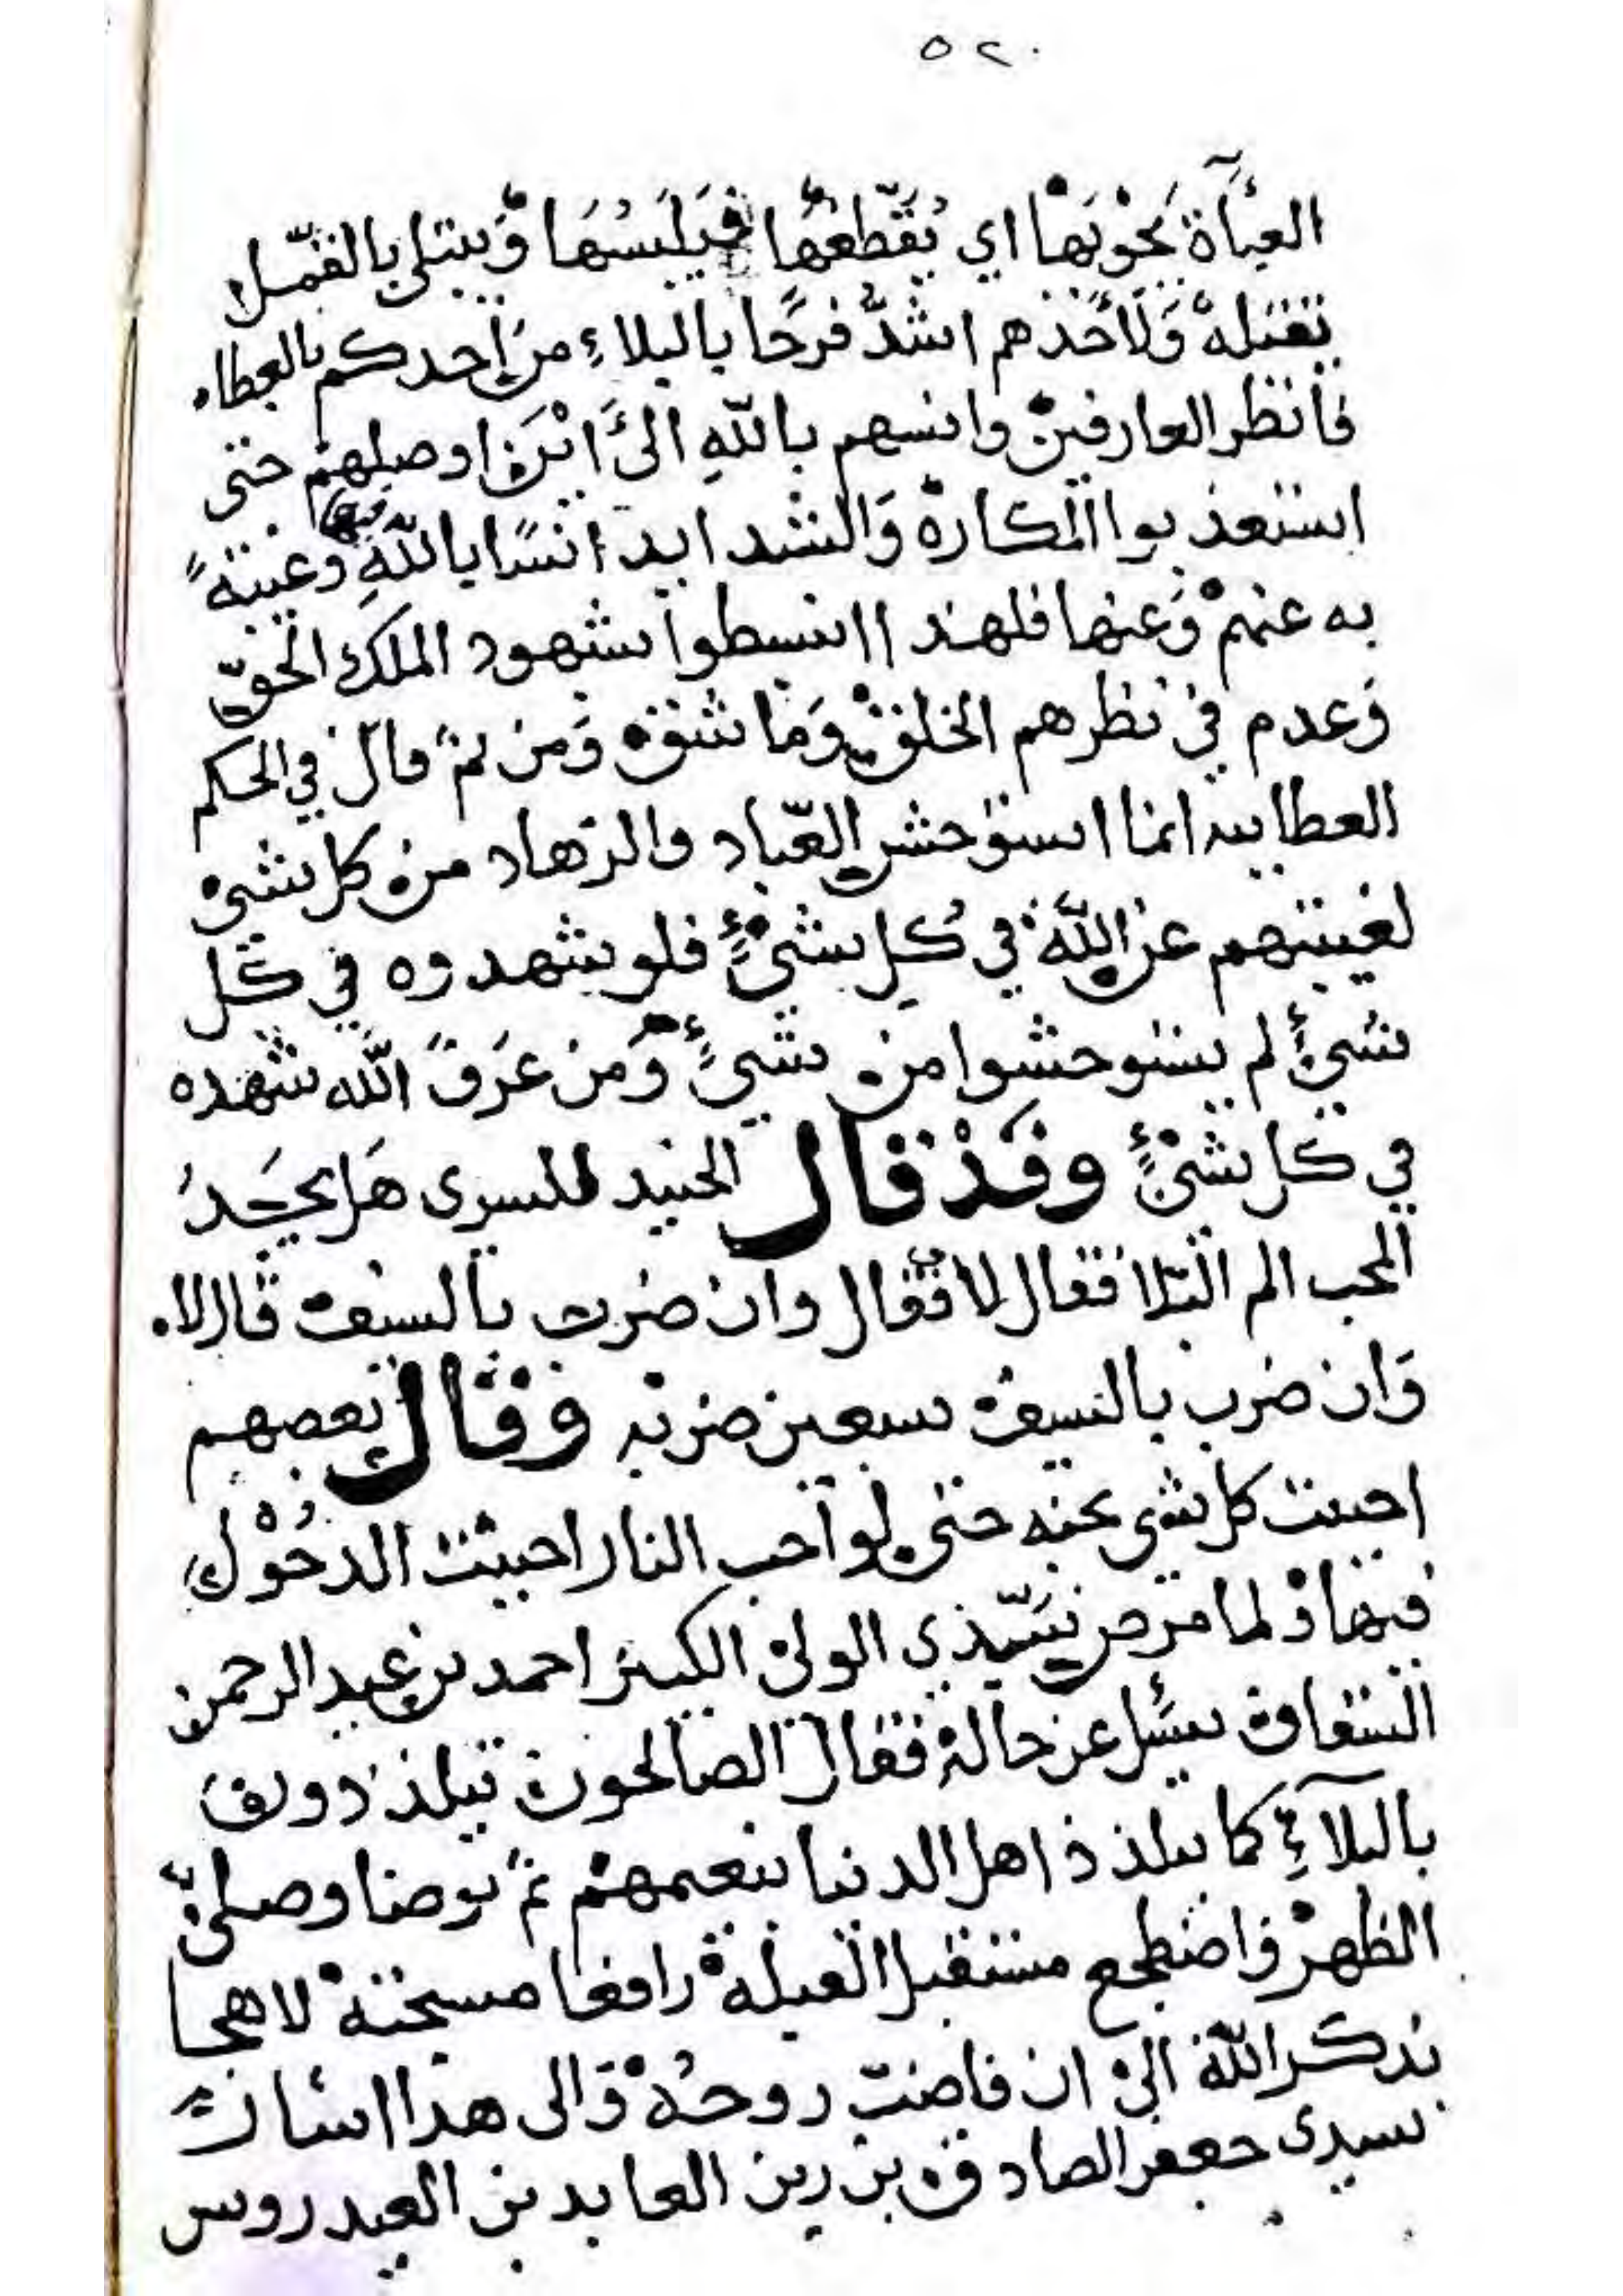 ٥٢٠
العبآءة يحويها اي يقطعها فيلبسها ويبتلى بالقمل
يقتله ولأحدهم اشد فرحا بالبلاء من احدكم بالعطاء
فانظر العارفين وانسهم بالله الى اين اوصلهم حتى
استعذبوا المكاره والشدايد انسا بالله وغيبة فيها
به عنهم وعنها فلهذا انبسطوا بشهود الملك الحق
وعدم في نظرهم الخلق وما شق ومن ثم قال في الحكم
العطاييه انما استوحش العباد والزهاد من كل شيء
لغيبتهم عن الله في كل شيء فلو شهدوه في كل
شيء لم يستوحشوا من شيء ومن عرف الله شهده
في كل شيء وقد قال الجنيد للسري هل يجد
المحب الم البلا فقال لا فقال وان ضرب بالسيف قال لا
وان ضرب بالسيف سبعين ضربه وقال بعضهم
احببت كل شي بحبه حتى لو احب النار احببت الدخول
فيها ولما مرض سيدي الولي الكبير احمد بن عبد الرحمن
السقاف سئل عن حاله فقال الصالحون يتلذذون
بالبلاء كما يتلذذ اهل الدنيا بنعيمهم ثم توضا وصلى
الظهر واضطجع مستقبل القبلة رافعا مسبحته لاهجا
بذكر الله الى ان فاضت روحه والى هذا اشار
سيدي جعفر الصادق بن زين العابدين العيدروس